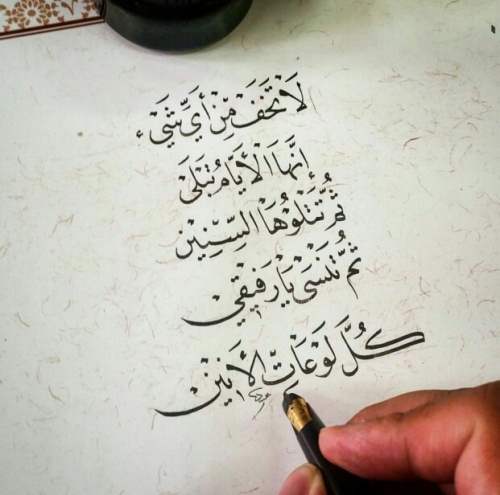 لَا تَخَفْ مِنْ أَيِّ شَيْءٍ
إِنَّهَا الْأَيَّامُ تُبْلَى
ثُمَّ تَتْلُوهَا السِّنِين
ثُمَّ تَنْسَى يَا رَفِيقِي
كُلَّ لَوْعَاتِ الْأَنِين